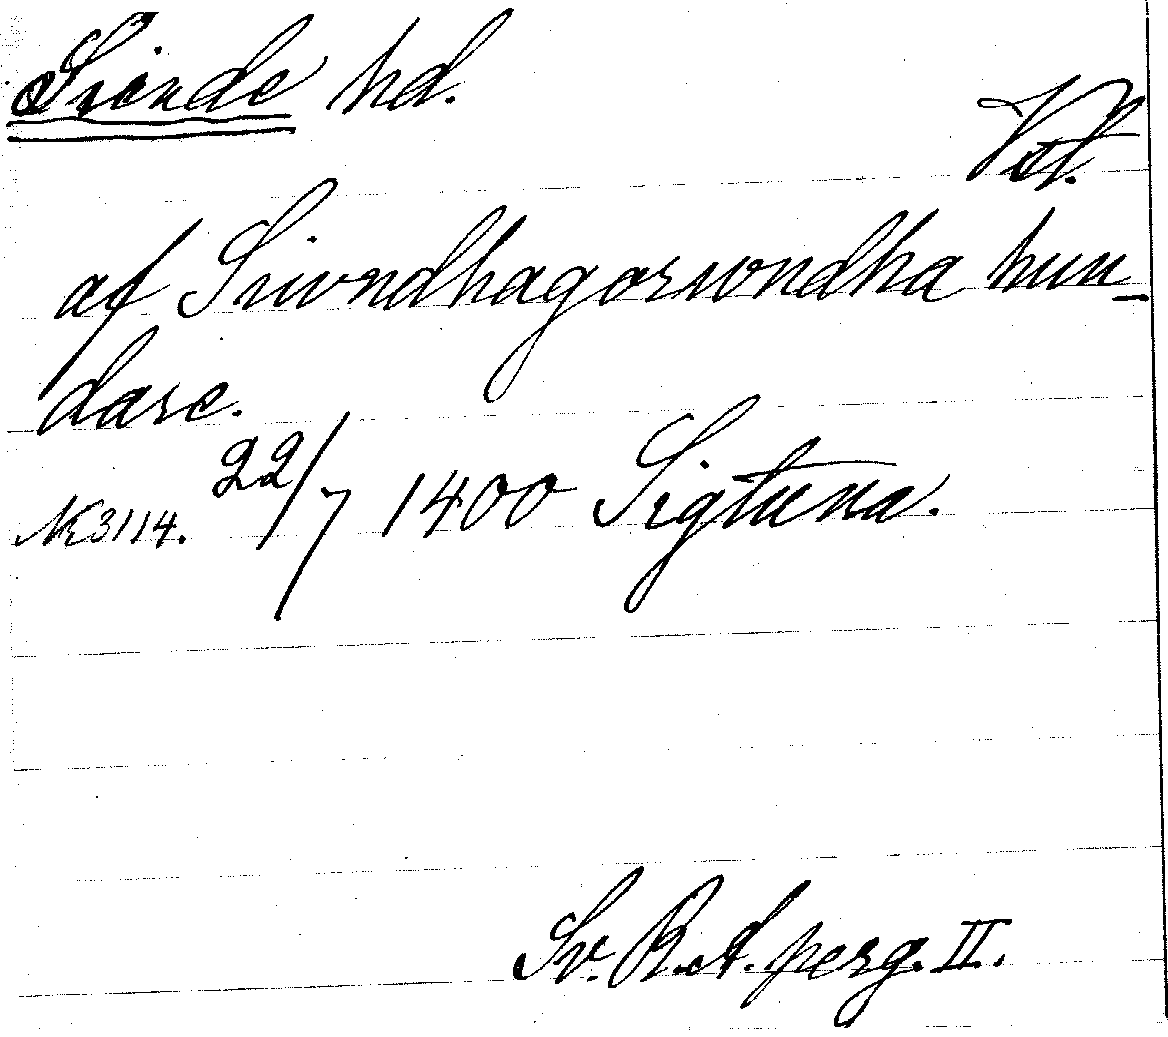 Siende hd.
Vst.
af Siwndhagorwndha hun-
dare.
NK3114. 22/7 1400 Sigtuna.
Sv. R.A. perg. II.